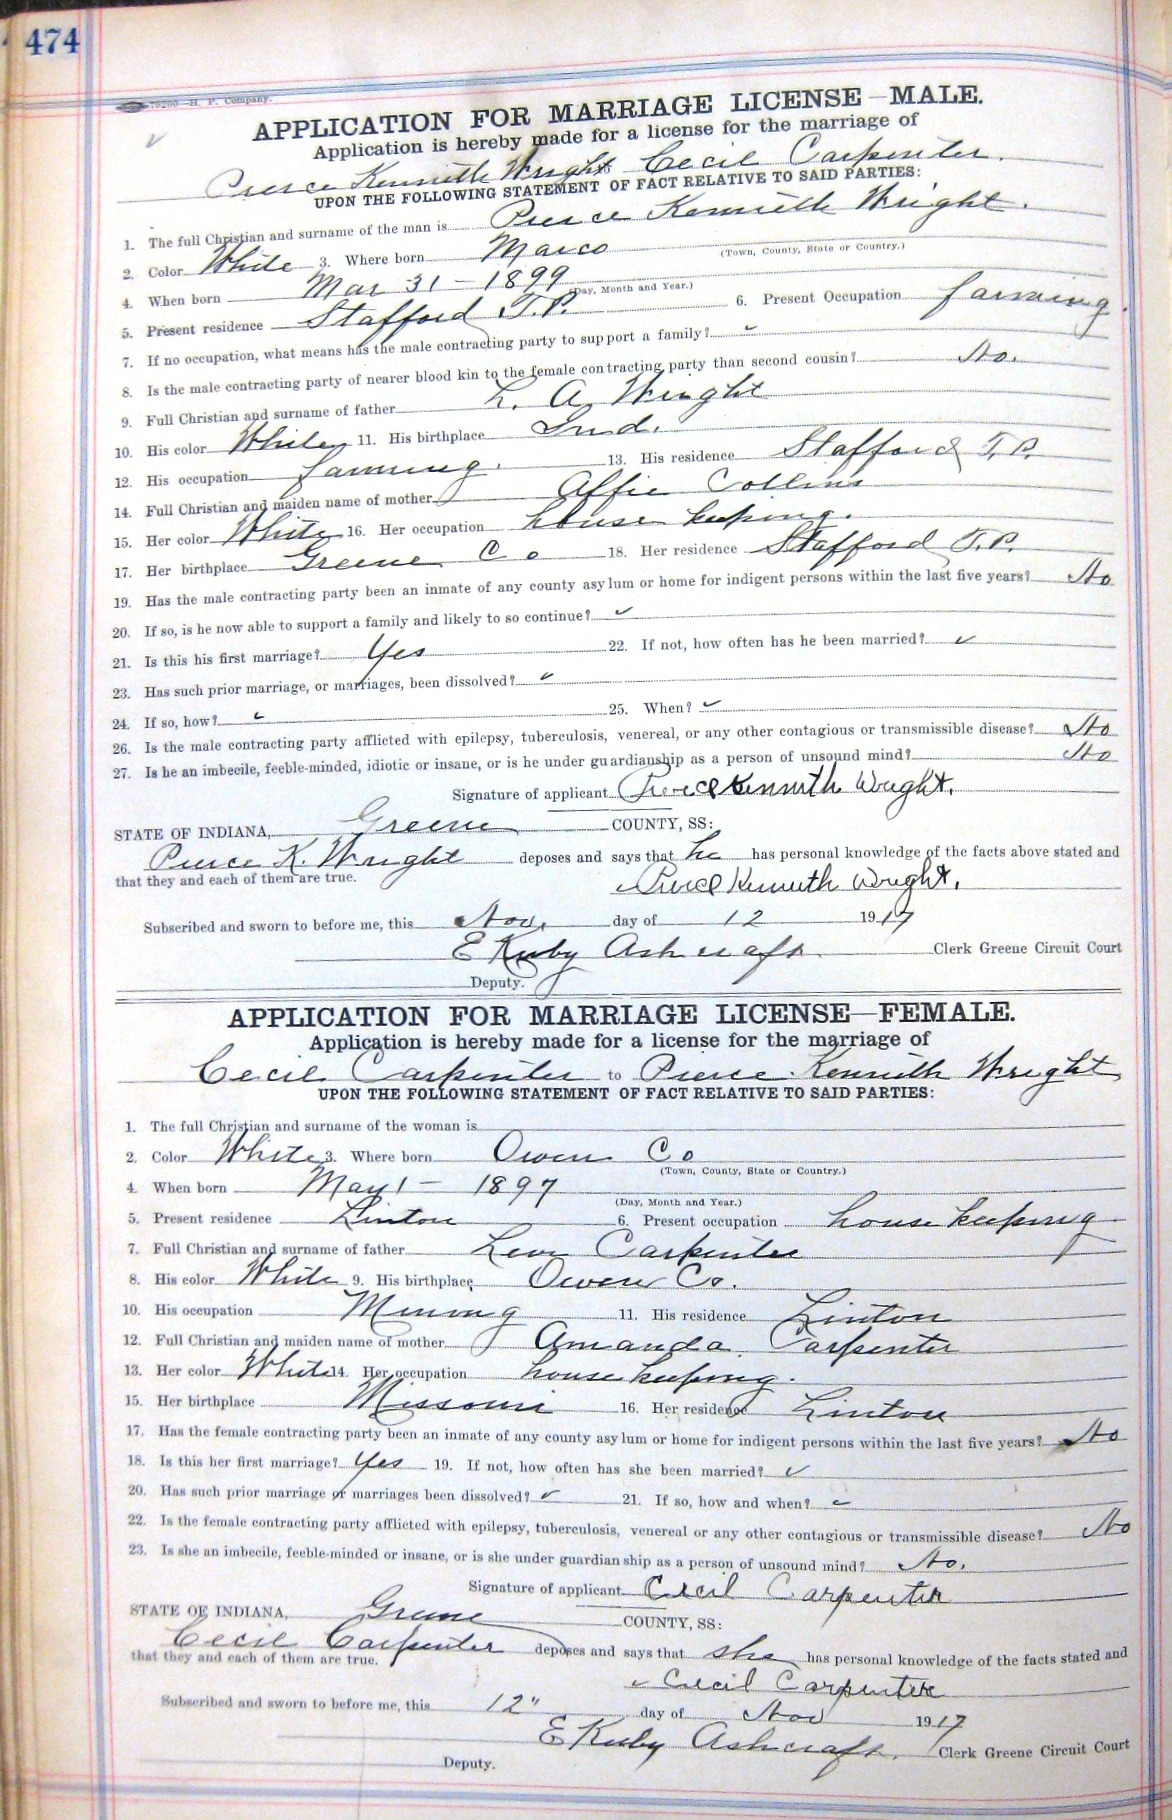 474
79200—H. P. Company.
APPLICATION FOR MARRIAGE LICENSE—MALE.
Application is hereby made for a license for the marriage of
Pierce Kenneth Wright to Cecil Carpenter.
UPON THE FOLLOWING STATEMENT OF FACT RELATIVE TO SAID PARTIES:
1. The full Christian and surname of the man is Pierce Kenneth Wright.
2. Color White 3. Where born Marco
(Town, County, State or Country.)
4. When born Mar 31 - 1899
(Day, Month and Year.)
5. Present residence Stafford T.P. 6. Present Occupation farming.
7. If no occupation, what means has the male contracting party to support a family? ✓
8. Is the male contracting party of nearer blood kin to the female contracting party than second cousin? No.
9. Full Christian and surname of father L. A. Wright
10. His color White 11. His birthplace Ind.
12. His occupation farming. 13. His residence Stafford T.P.
14. Full Christian and maiden name of mother Affie Collins
15. Her color White 16. Her occupation house keeping.
17. Her birthplace Greene Co 18. Her residence Stafford T.P.
19. Has the male contracting party been an inmate of any county asylum or home for indigent persons within the last five years? No
20. If so, is he now able to support a family and likely to so continue? ✓
21. Is this his first marriage? Yes 22. If not, how often has he been married? ✓
23. Has such prior marriage, or marriages, been dissolved? ✓
24. If so, how? ✓ 25. When? ✓
26. Is the male contracting party afflicted with epilepsy, tuberculosis, venereal, or any other contagious or transmissible disease? No
27. Is he an imbecile, feeble-minded, idiotic or insane, or is he under guardianship as a person of unsound mind? No
Signature of applicant Pierce Kenneth Wright.
STATE OF INDIANA, Greene COUNTY, SS:
Pierce K. Wright deposes and says that he has personal knowledge of the facts above stated and
that they and each of them are true.
Pierce Kenneth Wright.
Subscribed and sworn to before me, this Nov. day of 12 1917
E Kirby Ashcraft. Clerk Greene Circuit Court
Deputy.
APPLICATION FOR MARRIAGE LICENSE—FEMALE.
Application is hereby made for a license for the marriage of
Cecil Carpenter to Pierce Kenneth Wright
UPON THE FOLLOWING STATEMENT OF FACT RELATIVE TO SAID PARTIES:
1. The full Christian and surname of the woman is
2. Color White 3. Where born Owen Co
(Town, County, State or Country.)
4. When born May 1 - 1897
(Day, Month and Year.)
5. Present residence Linton 6. Present occupation house keeping
7. Full Christian and surname of father Levi Carpenter
8. His color White 9. His birthplace Owen Co.
10. His occupation Mining 11. His residence Linton
12. Full Christian and maiden name of mother Amanda Carpenter
13. Her color White 14. Her occupation house keeping.
15. Her birthplace Missouri 16. Her residence Linton
17. Has the female contracting party been an inmate of any county asylum or home for indigent persons within the last five years? No
18. Is this her first marriage? Yes 19. If not, how often has she been married? ✓
20. Has such prior marriage or marriages been dissolved? ✓ 21. If so, how and when? ✓
22. Is the female contracting party afflicted with epilepsy, tuberculosis, venereal or any other contagious or transmissible disease? No
23. Is she an imbecile, feeble-minded or insane, or is she under guardianship as a person of unsound mind? No.
Signature of applicant Cecil Carpenter
STATE OF INDIANA, Greene COUNTY, SS:
Cecil Carpenter deposes and says that she has personal knowledge of the facts stated and
that they and each of them are true.
Cecil Carpenter
Subscribed and sworn to before me, this 12" day of Nov 1917
E Kirby Ashcraft. Clerk Greene Circuit Court
Deputy.